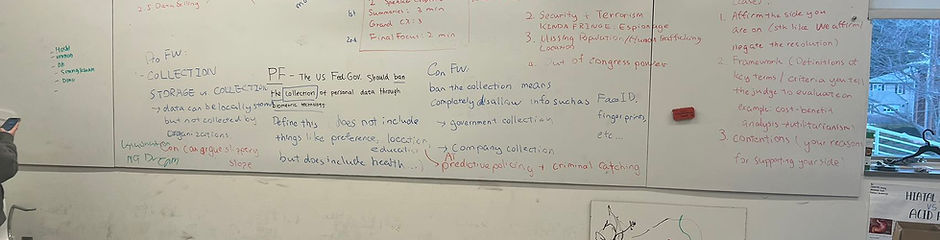 2.5 Data Selling
1st
2nd
Summaries: 3 min
Grand CX: 3
Final Focus: 2 min
2. Security + Terrorism
KINDA FRINGE: Espionage
3. Missing Population/Human Trafficking
Location
4. Out of Congress power
Pro FW:
- COLLECTION
STORAGE vs COLLECTION
→ data can be locally stored
but not collected by
organizations.
Con can argue slippery
slope
PF - The US Fed. Gov. Should ban
the collection of personal data through
biometric technology
Define this
does not include
things like preference, location,
education
but does include health ...,
Con FW:
ban the collection means
completely disallow info such as FaceID,
fingerprints,
etc...
→ government collection
→ Company collection
AI
→ predictive policing + criminal catching
1. Affirm the side you
are on (sth like We affirm/
negate the resolution)
2. Framework (Definitions of
key terms / criteria you tell
the judge to evaluate on
example: cost-benefit
analysis → utilitarianism)
3. contentions (your reasons
for supporting your side)
HIATAL
VS
ACID